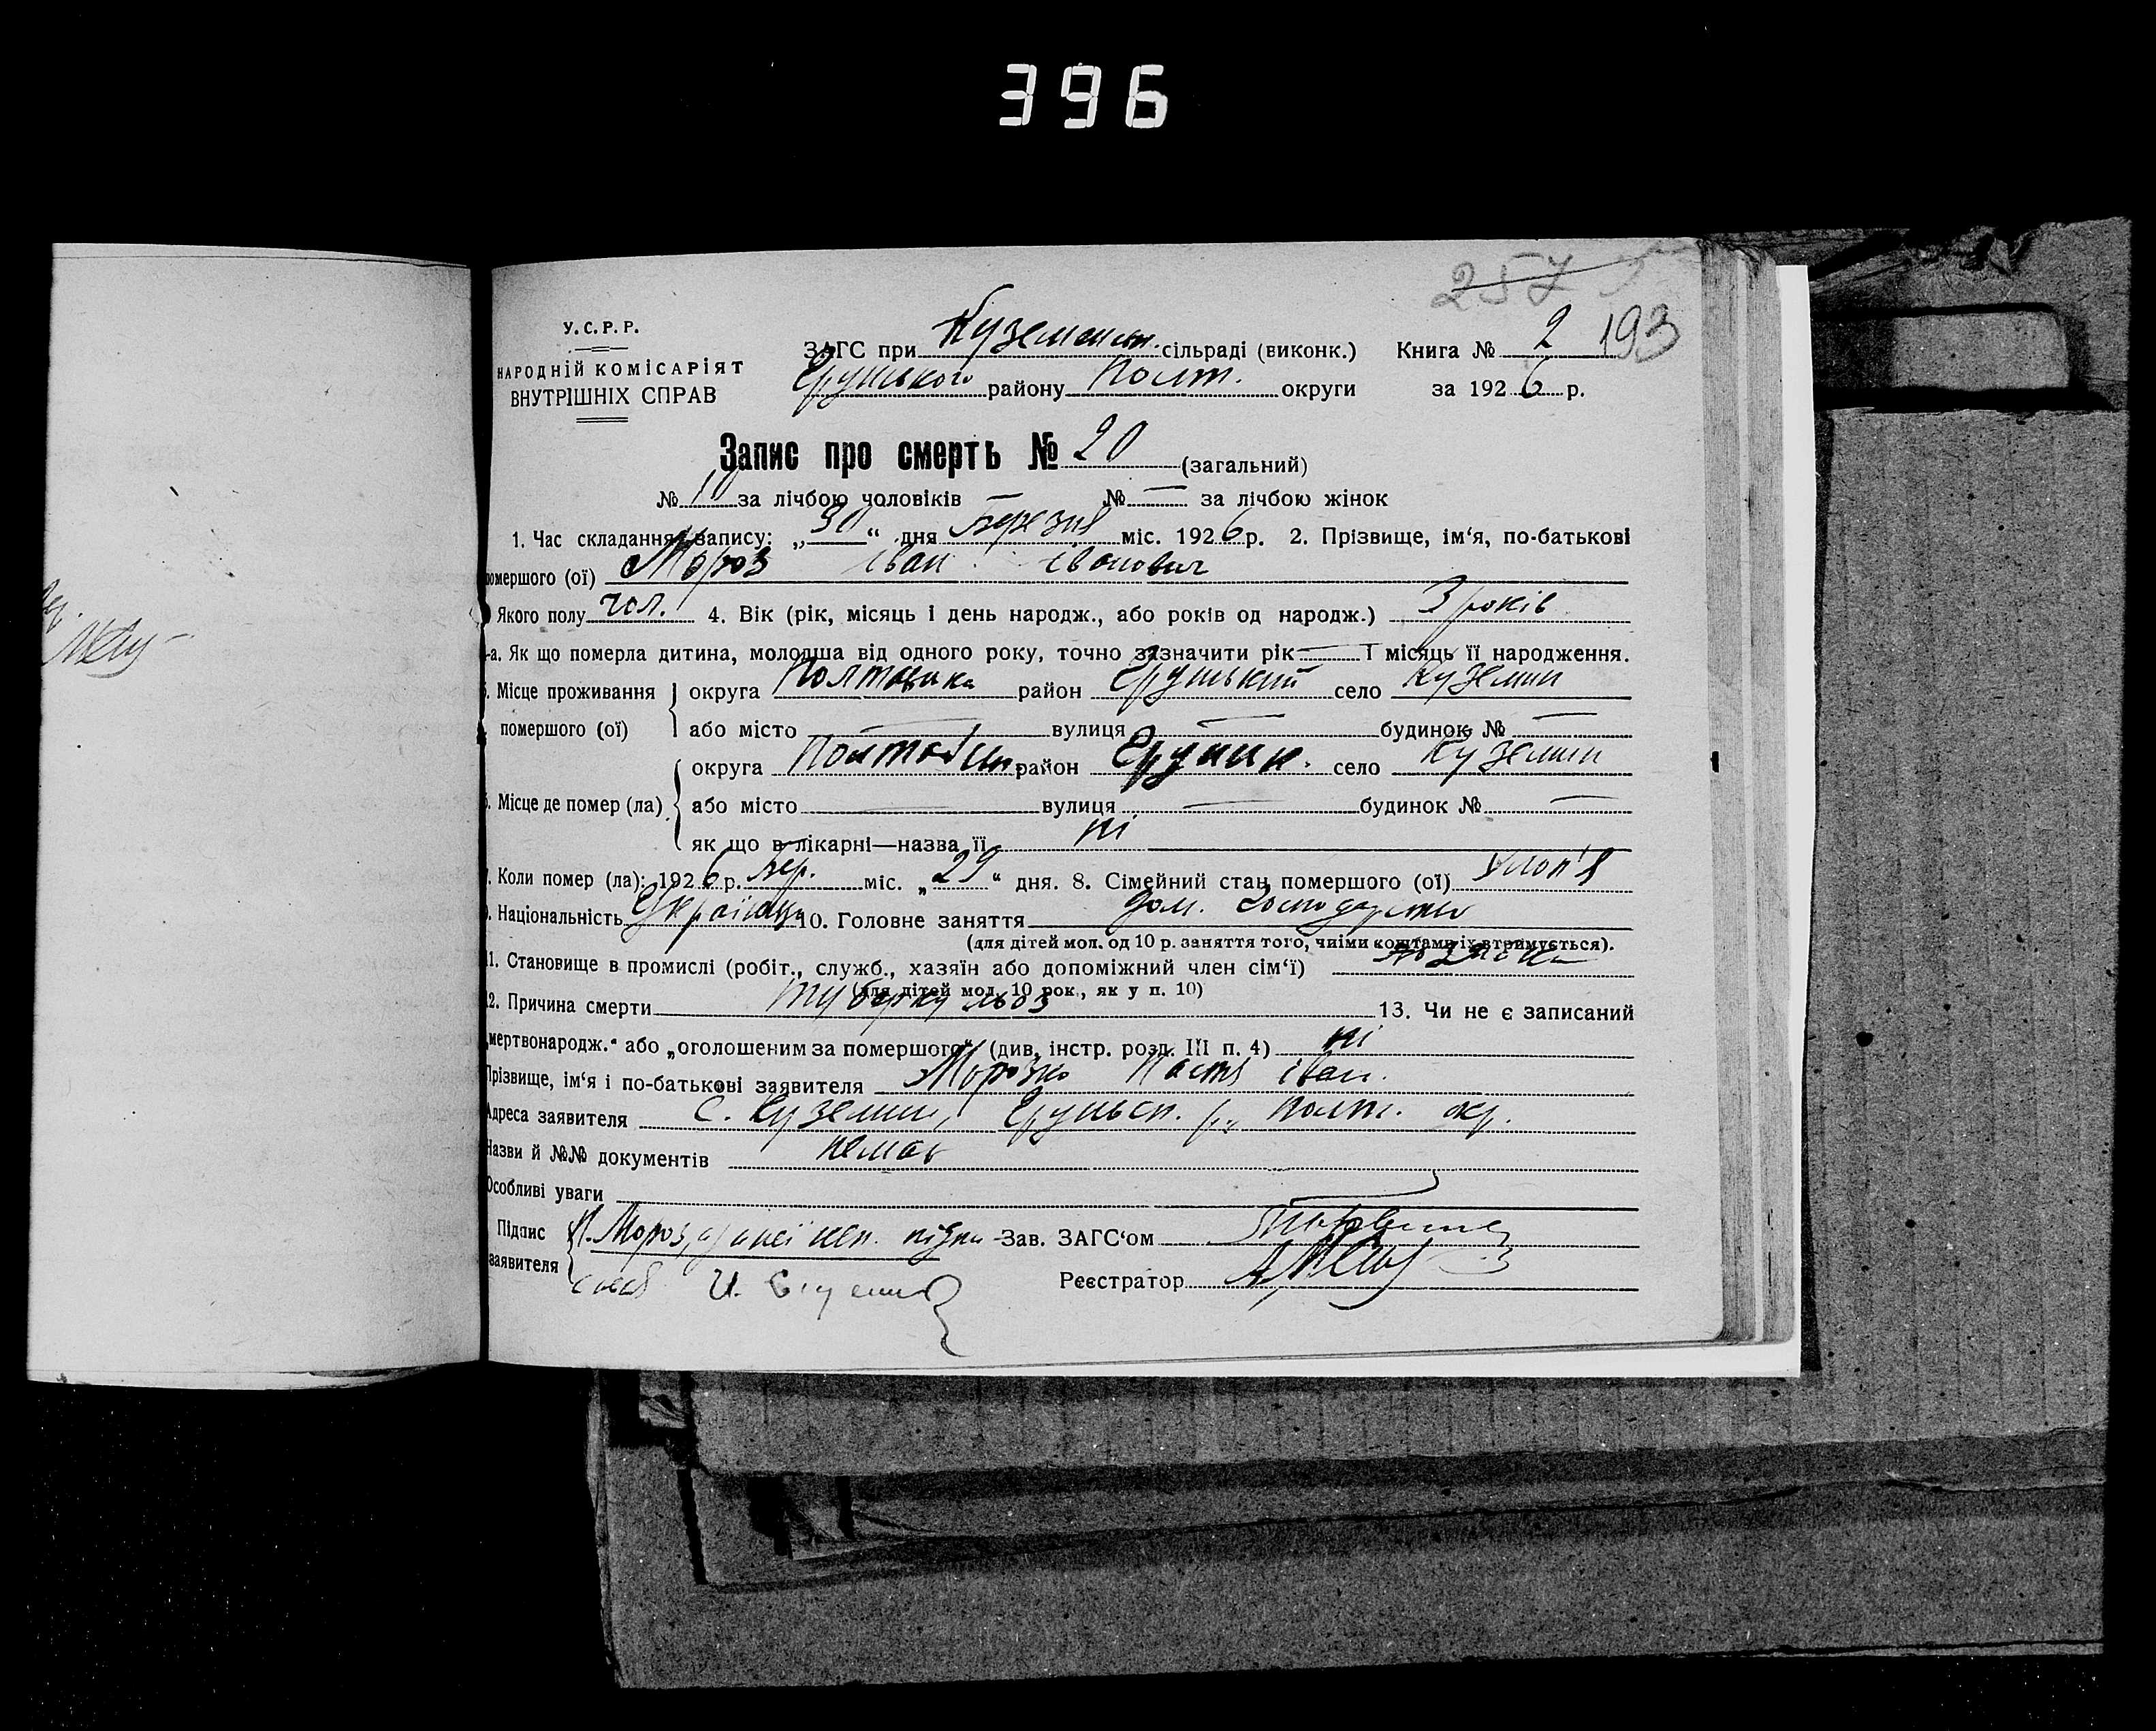 396
257
У.С.Р.Р.
НАРОДНІЙ КОМІСАРІЯТ
ВНУТРІШНІХ СПРАВ
ЗАГС при Куземенськ. сільраді (виконк.) Книга № 2 193
Грунського району Полт. округи за 1926 р.
Запис про смерть № 20 (загальний)
№ 10 за лічбою чоловіків — № — за лічбою жінок
1. Час складання запису: „30“ дня Березня міс. 1926 р. 2. Прізвище, ім‘я, по-батькові
помершого (ої) Мороз Іван Іванович
Якого полу чол. 4. Вік (рік, місяць і день народж., або років од народж.) 3 років
-а. Як що померла дитина, молодша від одного року, точно зазначити рік — і місяць її народження.
Місце проживання округа Полтавська район Грунський село Куземин
помершого (ої) або місто — вулиця — будинок № —
округа Полтавськ. район Грунськ. село Куземин
Місце де помер (ла) або місто — вулиця — будинок № —
як що в лікарні—назва її ні
Коли помер (ла): 1926 р. Бер. міс. „29“ дня. 8. Сімейний стан помершого (ої) хлоп'я
Національність Українець 10. Головне заняття дом. господарство
(для дітей мол. од 10 р. заняття того, чиїми коштами їх втримується).
11. Становище в промислі (робіт., служб., хазяїн або допоміжний член сім‘ї)
(для дітей мол. 10 рок., як у п. 10)
12. Причина смерти туберкульоз 13. Чи не є записаний
„мертвонародж.“ або „оголошеним за помершого“ (див. інстр. розд. III п. 4) ні
Прізвище, ім‘я і по-батькові заявителя Настя Іван.
Адреса заявителя с. Куземин, Грунськ. р., Полт. окр.
Назви й №№ документів немає
Особливі уваги
Підпис Н. Мороз, а за неї неп. підпи- Зав. ЗАГС‘ом
заявителя И.
Реєстратор